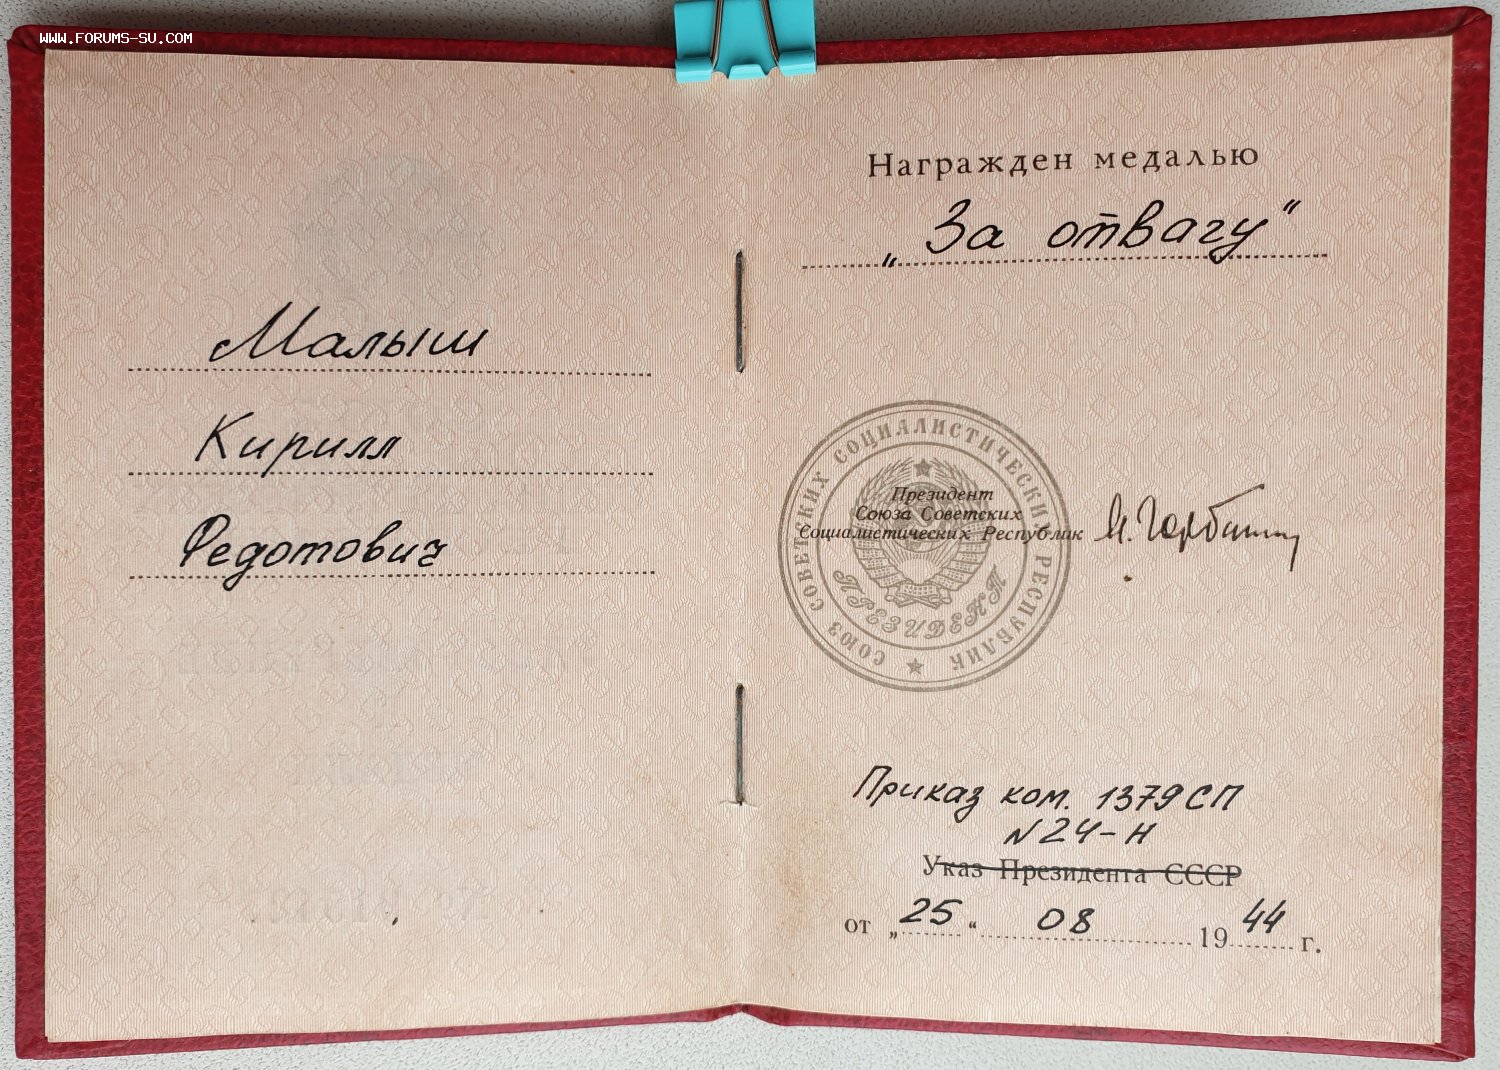 WWW.FORUMS-SU.COM
Малыш
Кирилл
Федотович
Награжден медалью
„За отвагу“
СОЮЗ СОВЕТСКИХ СОЦИАЛИСТИЧЕСКИХ РЕСПУБЛИК
ПРЕЗИДЕНТ
Президент
Союза Советских
Социалистических Республик
М. Горбачев
Приказ ком. 1379 СП
N 24-н
Указ Президента СССР
от „25“ 08 1944 г.